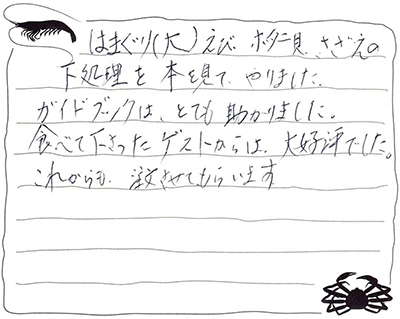 はまぐり(大)えび、ホタテ貝、さざえの
下処理を本を見て、やりました。
ガイドブックは、とても助かりました。
食べて下さったゲストからは、大好評でした。
これからも、注文させてもらいます